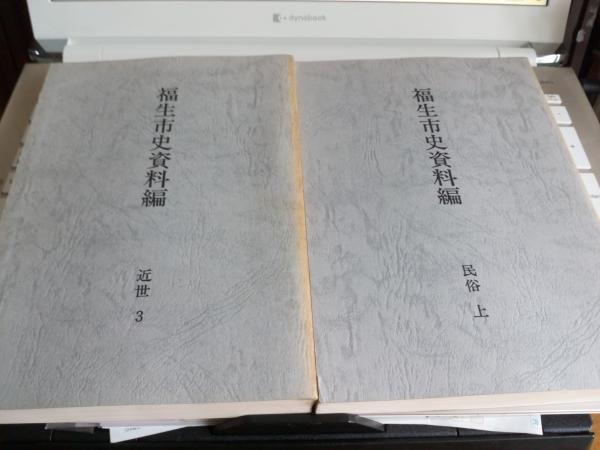 dynabook
福生市史資料編
近世 3
福生市史資料編
民俗 上